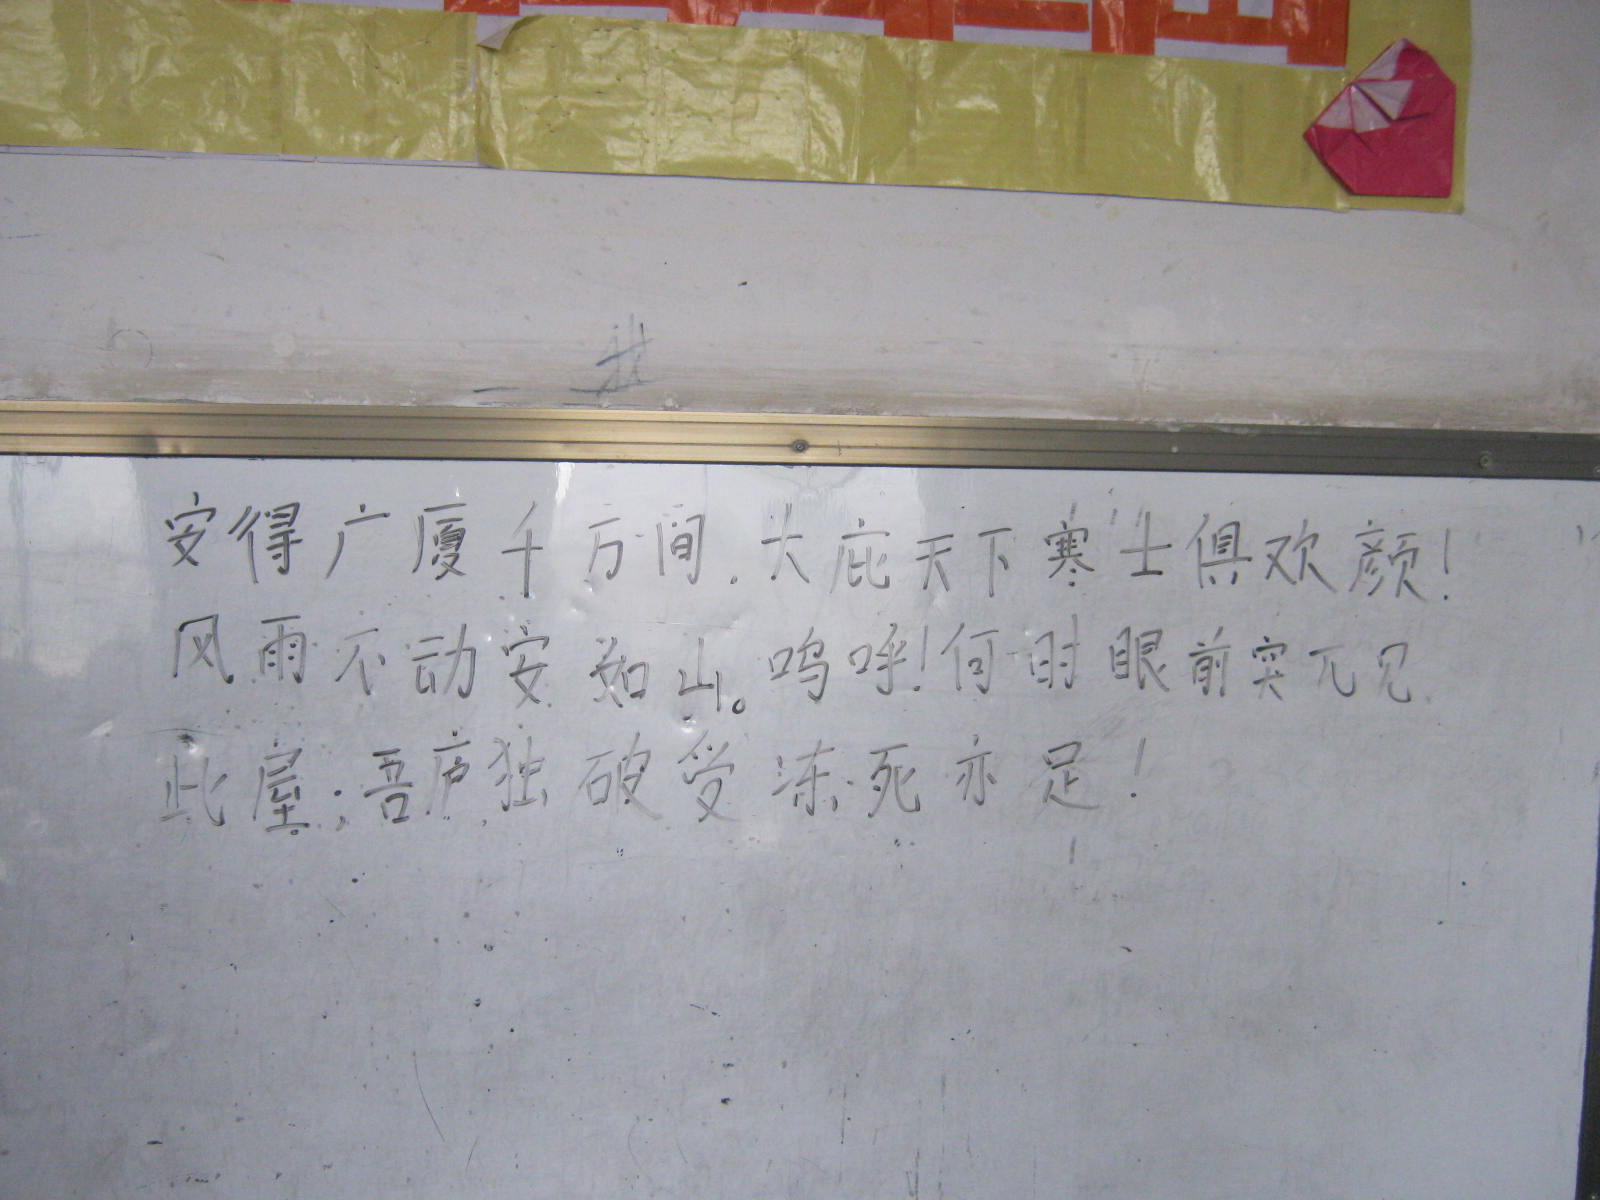 安得广厦千万间,大庇天下寒士俱欢颜!
风雨不动安如山。呜呼!何时眼前突兀见
此屋;吾庐独破受冻死亦足!